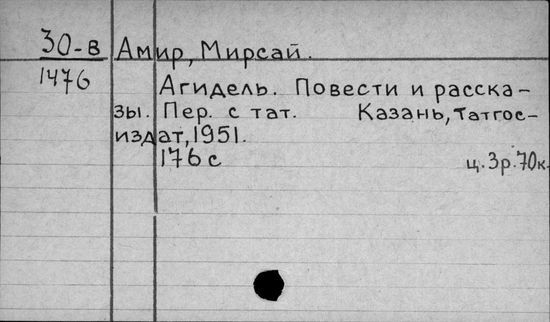 30-в Амир, Мирсай.
1476 Агидель. Повести и расска-
зы. Пер. с тат. Казань, Татгос-
издат, 1951.
176 с ц. 3р. 70к.